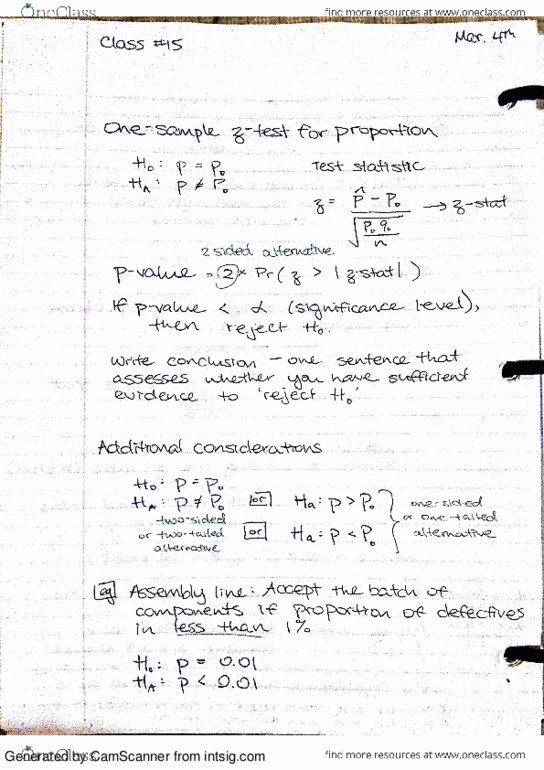 OneClass
find more resources at www.oneclass.com
Class #15
Mar. 4th
One-sample z-test for proportion
H₀: p = p₀
Hᴀ: p ≠ p₀
Test statistic
z = (p̂ - p₀) / √(p₀ q₀ / n) → z-stat
2 sided alternative
p-value = 2 × Pr( z > |z-stat| )
If p-value < α (significance level),
then reject H₀.
Write conclusion - one sentence that
assesses whether you have sufficient
evidence to 'reject H₀'
Additional considerations
H₀: p = p₀
Hᴀ: p ≠ p₀ or Ha: p > p₀
two-sided
or two-tailed
alternative
or Ha: p < p₀
one-sided
or one-tailed
alternative
eg Assembly line: Accept the batch of
components if proportion of defectives
in less than 1%
H₀: p = 0.01
Hᴀ: p < 0.01
Generated by CamScanner from intsig.com
OneClass
find more resources at www.oneclass.com